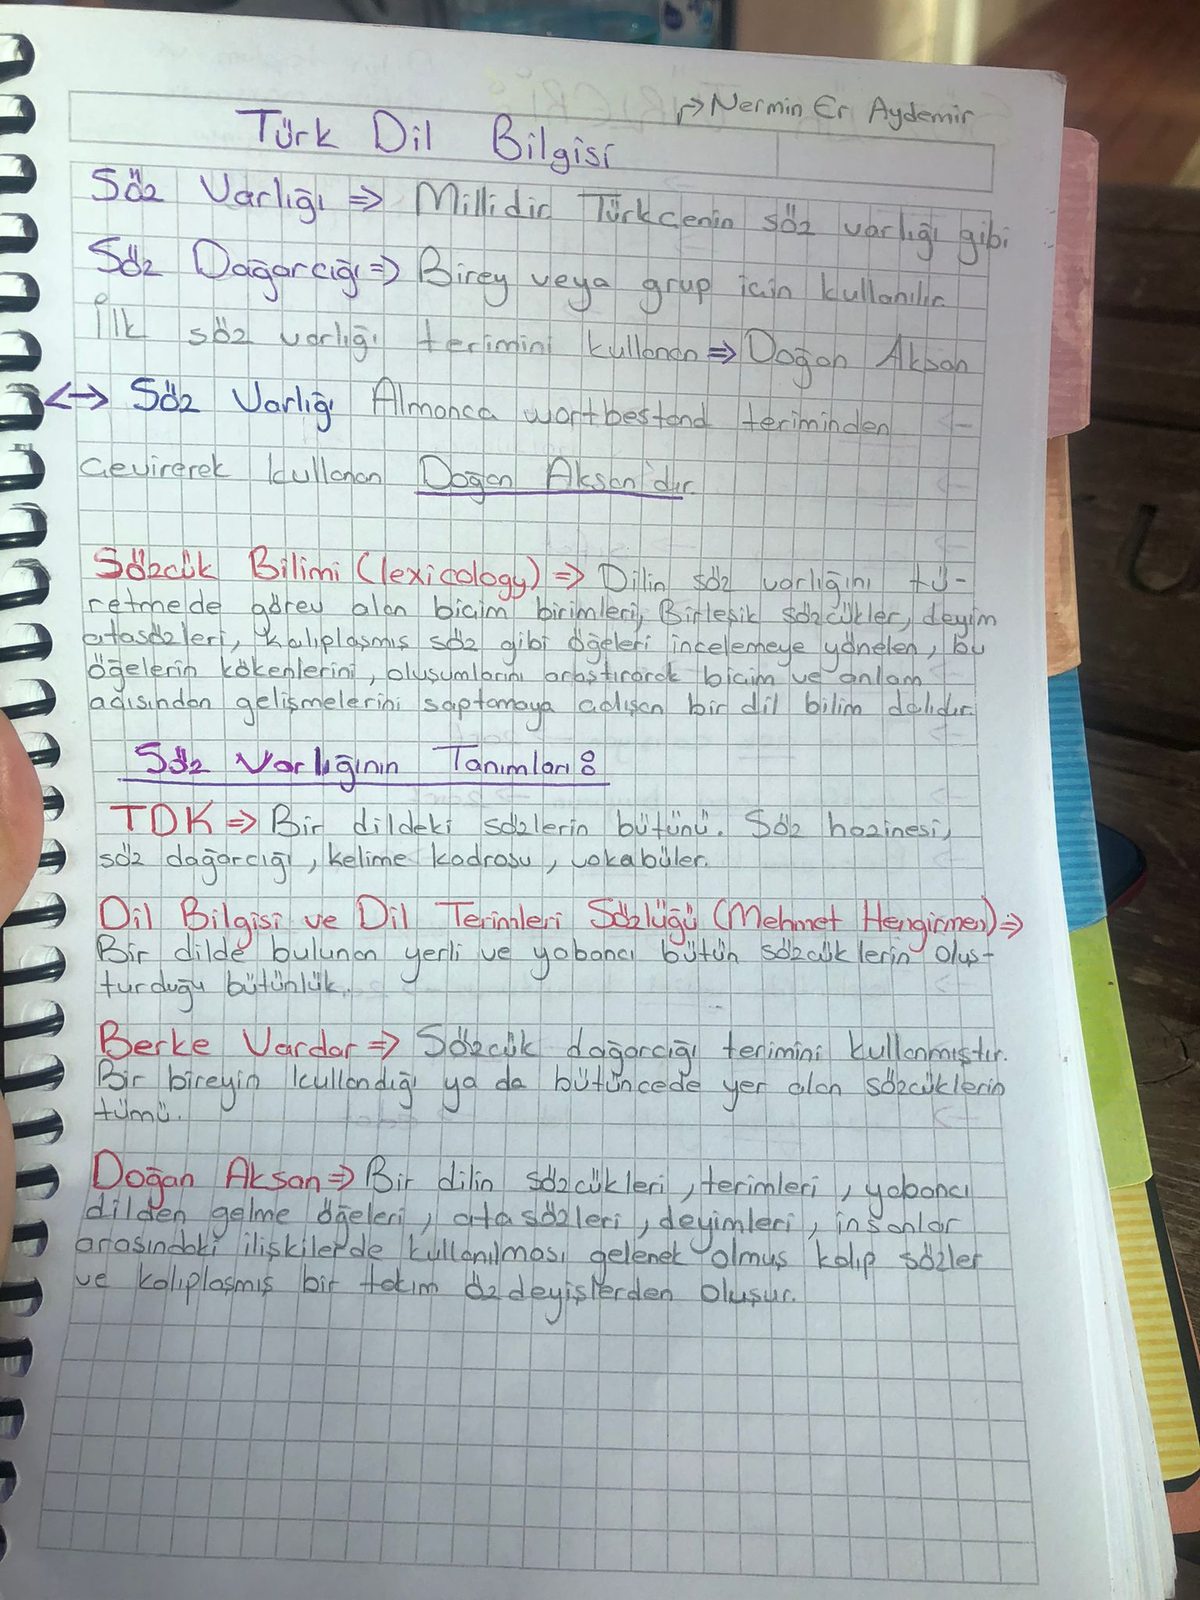 ↱> Nermin Er Aydemir
Türk Dil Bilgisi
Söz Varlığı => Millidir Türkcenin söz varlığı gibi
Söz Dağarcığı => Birey veya grup icin kullanılır
İlk söz varlığı terimini kullanan => Doğan Aksan
<-> Söz Varlığı Almanca wortbestand teriminden
cevirerek kullanan Doğan Aksan'dır.
Sözcük Bilimi (lexicology) => Dilin söz varlığını tü-
retmede görev alan bicim birimleri, Birleşik sözcükler, deyim
atasözleri, kalıplaşmış söz gibi öğeleri incelemeye yönelen, bu
öğelerin kökenlerini, oluşumlarını araştırarak bicim ve anlam
acısından gelişmelerini saptamaya calışan bir dil bilim dalıdır.
Söz Varlığının Tanımları:
TDK => Bir dildeki sözlerin bütünü. Söz hazinesi,
söz dağarcığı, kelime kadrosu, vokabüler.
Dil Bilgisi ve Dil Terimleri Sözlüğü (Mehmet Hengirmen) =>
Bir dilde bulunan yerli ve yabancı bütün sözcüklerin oluş-
turduğu bütünlük.
Berke Vardar => Sözcük dağarcığı terimini kullanmıştır.
Bir bireyin kullandığı ya da bütüncede yer alan sözcüklerin
tümü.
Doğan Aksan => Bir dilin sözcükleri, terimleri, yabancı
dilden gelme öğeleri, atasözleri, deyimleri, insanlar
arasındaki ilişkilerde kullanılması gelenek olmuş kalıp sözler
ve kalıplaşmış bir takım özdeyişlerden oluşur.